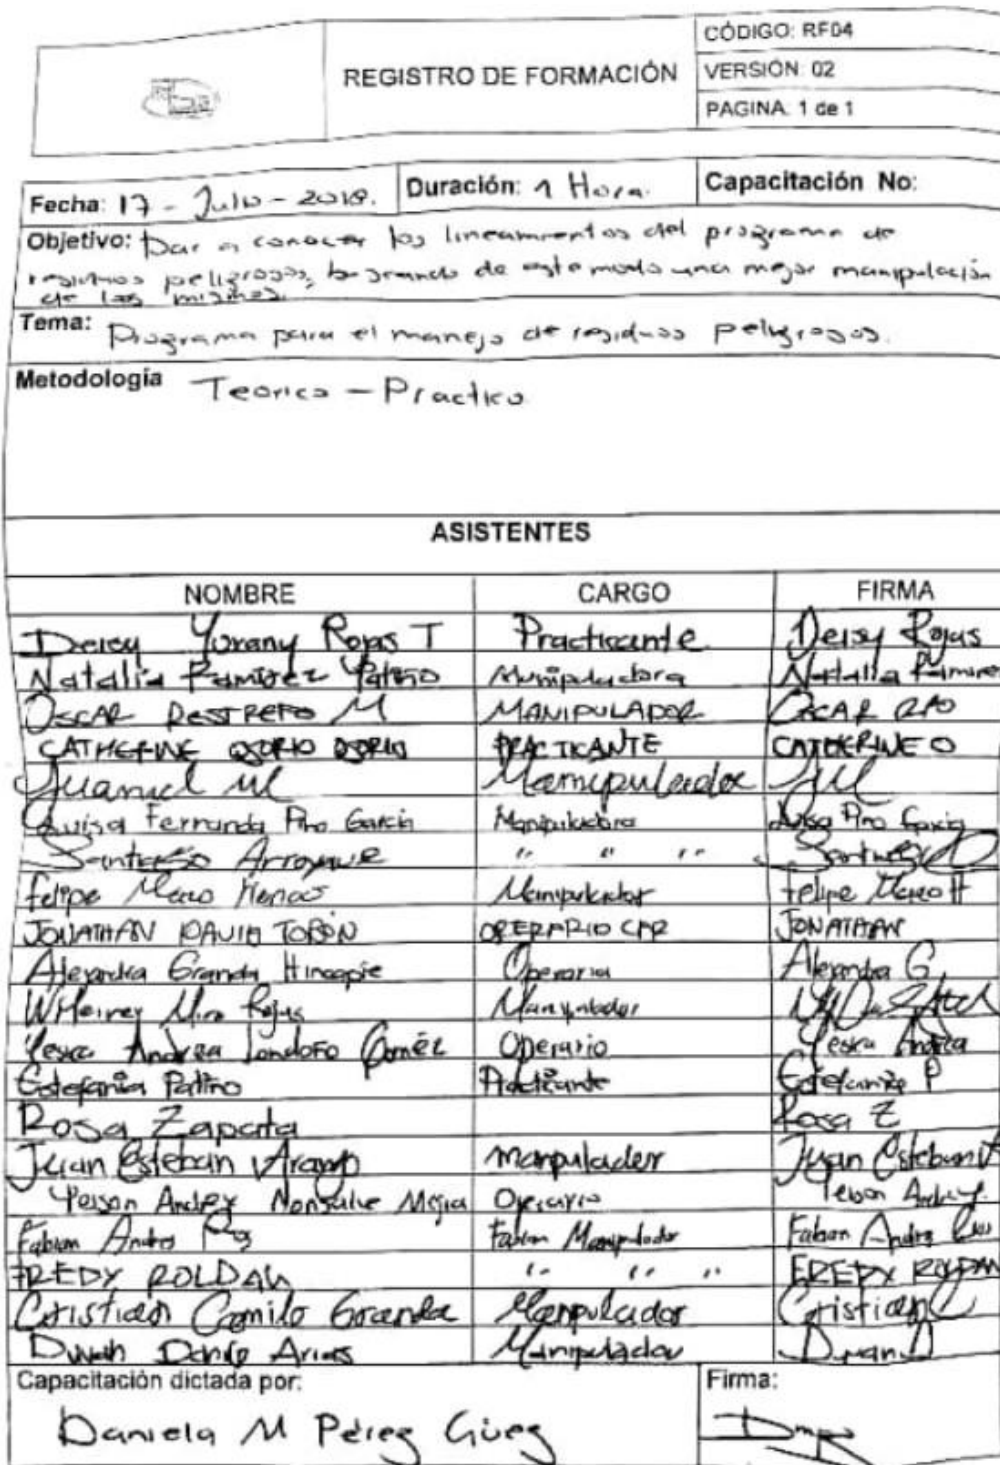 REGISTRO DE FORMACIÓN
CÓDIGO: RF04
VERSIÓN: 02
PAGINA: 1 de 1
Fecha: 17 - Julio - 2018. Duración: 1 Hora. Capacitación No:
Objetivo: Dar a conocer los lineamientos del programa de
residuos peligrosos, logrando de este modo una mejor manipulación
de los mismos.
Tema: Programa para el manejo de residuos peligrosos.
Metodología Teorico - Practico
ASISTENTES
NOMBRE CARGO FIRMA
Deicy Yurany Rojas T Practicante Deisy Rojas
Natalia Ramirez Patiño Manipuladora Natalia Ramirez
OSCAR RESTREPO M MANIPULADOR OSCAR RPO
CATHERINE OSORIO OSORIO PRACTICANTE CATHERINE O
Manipulador
Luisa Fernanda Pino Garcia Manipuladora Luisa Pino Garcia
Santiago Arroyave " " " Santiago
Felipe Henao Manipulador Felipe
JONATHAN DAVID TOBÓN OPERARIO JONATHAN
Alejandra Granda Hincapie Operaria Alejandra G
Rojas Manipulador
Yesica Andrea Londoño Gómez Operario Yesica Andrea
Estefania Patiño Practicante Estefania P
Rosa Zapata Rosa Z
Juan Esteban Arango manipulador Juan Esteban A
Yeison Andrey Monsalve Mejia Operario Yeison Andrey
Fabian Andres Fabian Manipulador Fabian Andres
FREDY ROLDAN " " " FREDY ROLDAN
Cristian Camilo Granda Manipulador Cristian C
Arias Manipulador
Capacitación dictada por: Firma:
Daniela M Pérez